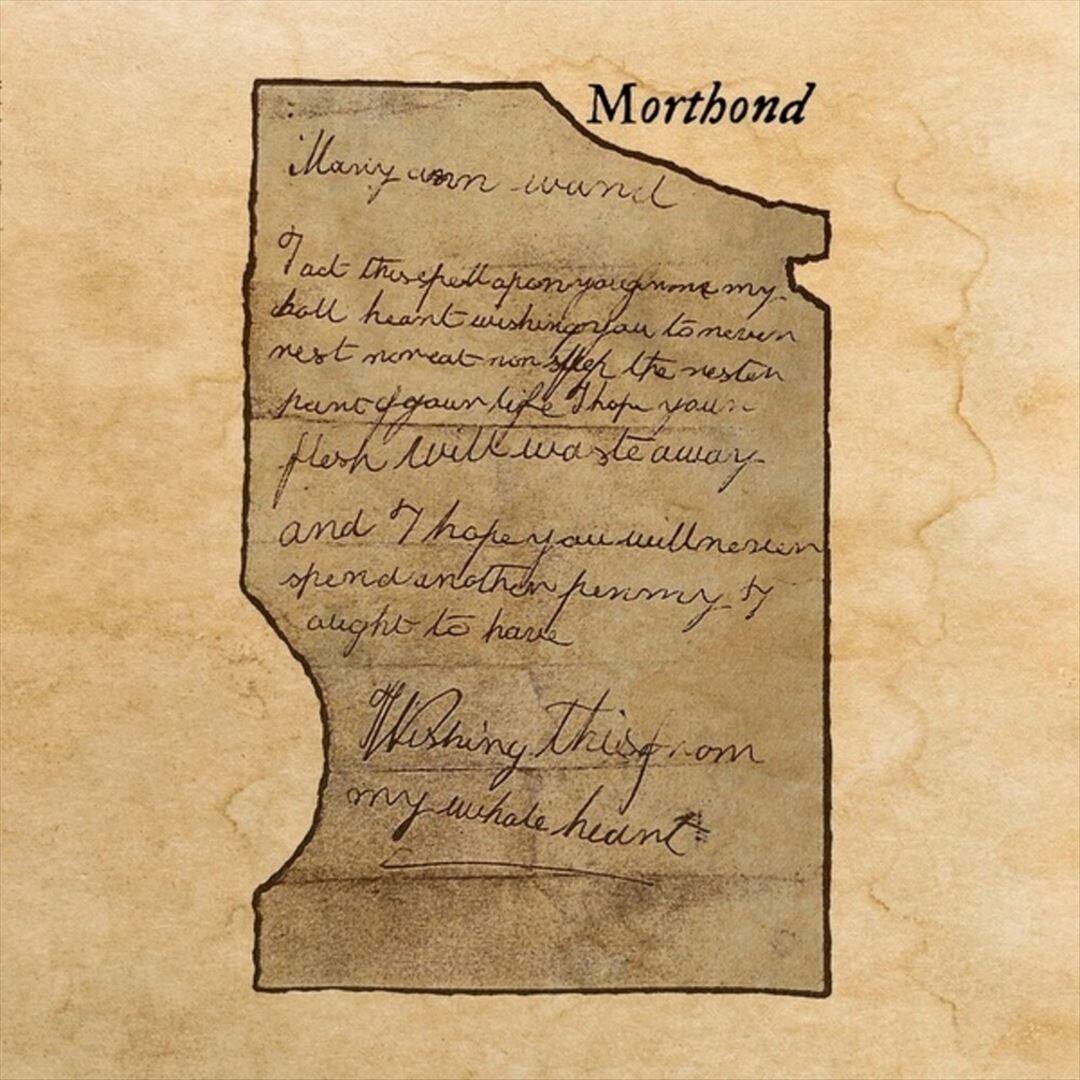 Morthond
Mary ann ward
I act this spell apon you from my
holl heart wishing you to never
rest nor eat nor sleep the rester
part of your life I hope your
flesh will waste away
and I hope you will never
spend another penny I
ought to have
Wishing this from
my whole heart